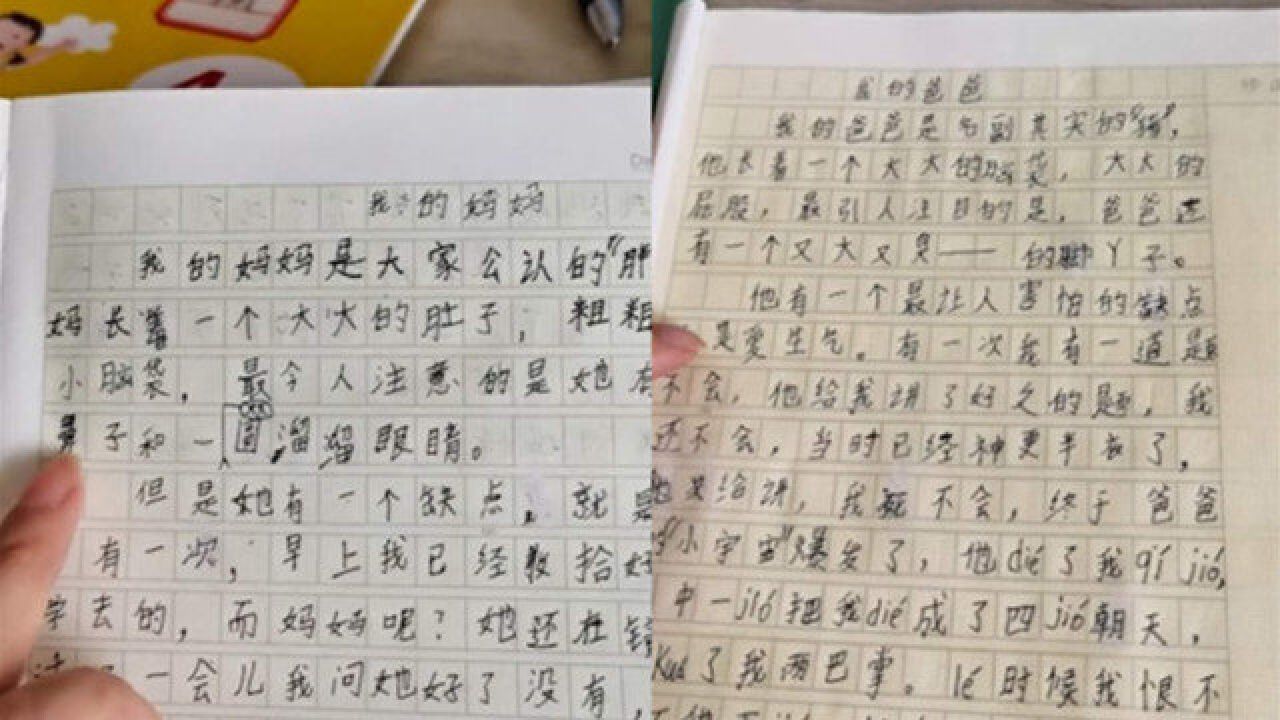 我的妈妈
我的妈妈是大家公认的“胖
妈长着一个大大的肚子，粗粗
小脑袋，最令人注意的是她有
鼻子和一圆溜溜眼睛。
但是她有一个缺点，就是
有一次，早上我已经收拾好
学去的，而妈妈呢？她还在
一会儿我问她好了没有，
我的爸爸
我的爸爸是名副其实的“猪”，
他长着一个大大的脑袋，大大的
屁股，最引人注目的是，爸爸还
有一个又大又臭——的脚丫子。
他有一个最让人害怕的缺点
是爱生气。有一次我有一道题
不会，他给我讲了好久的题，我
还不会，当时已经神更半夜了，
他又给讲，我还不会，终于爸爸
“小宇宙”爆发了，他dié了我qí jió，
中一jió把我dié成了四jió朝天，
Kuó了我两巴掌。lé时候我恨不